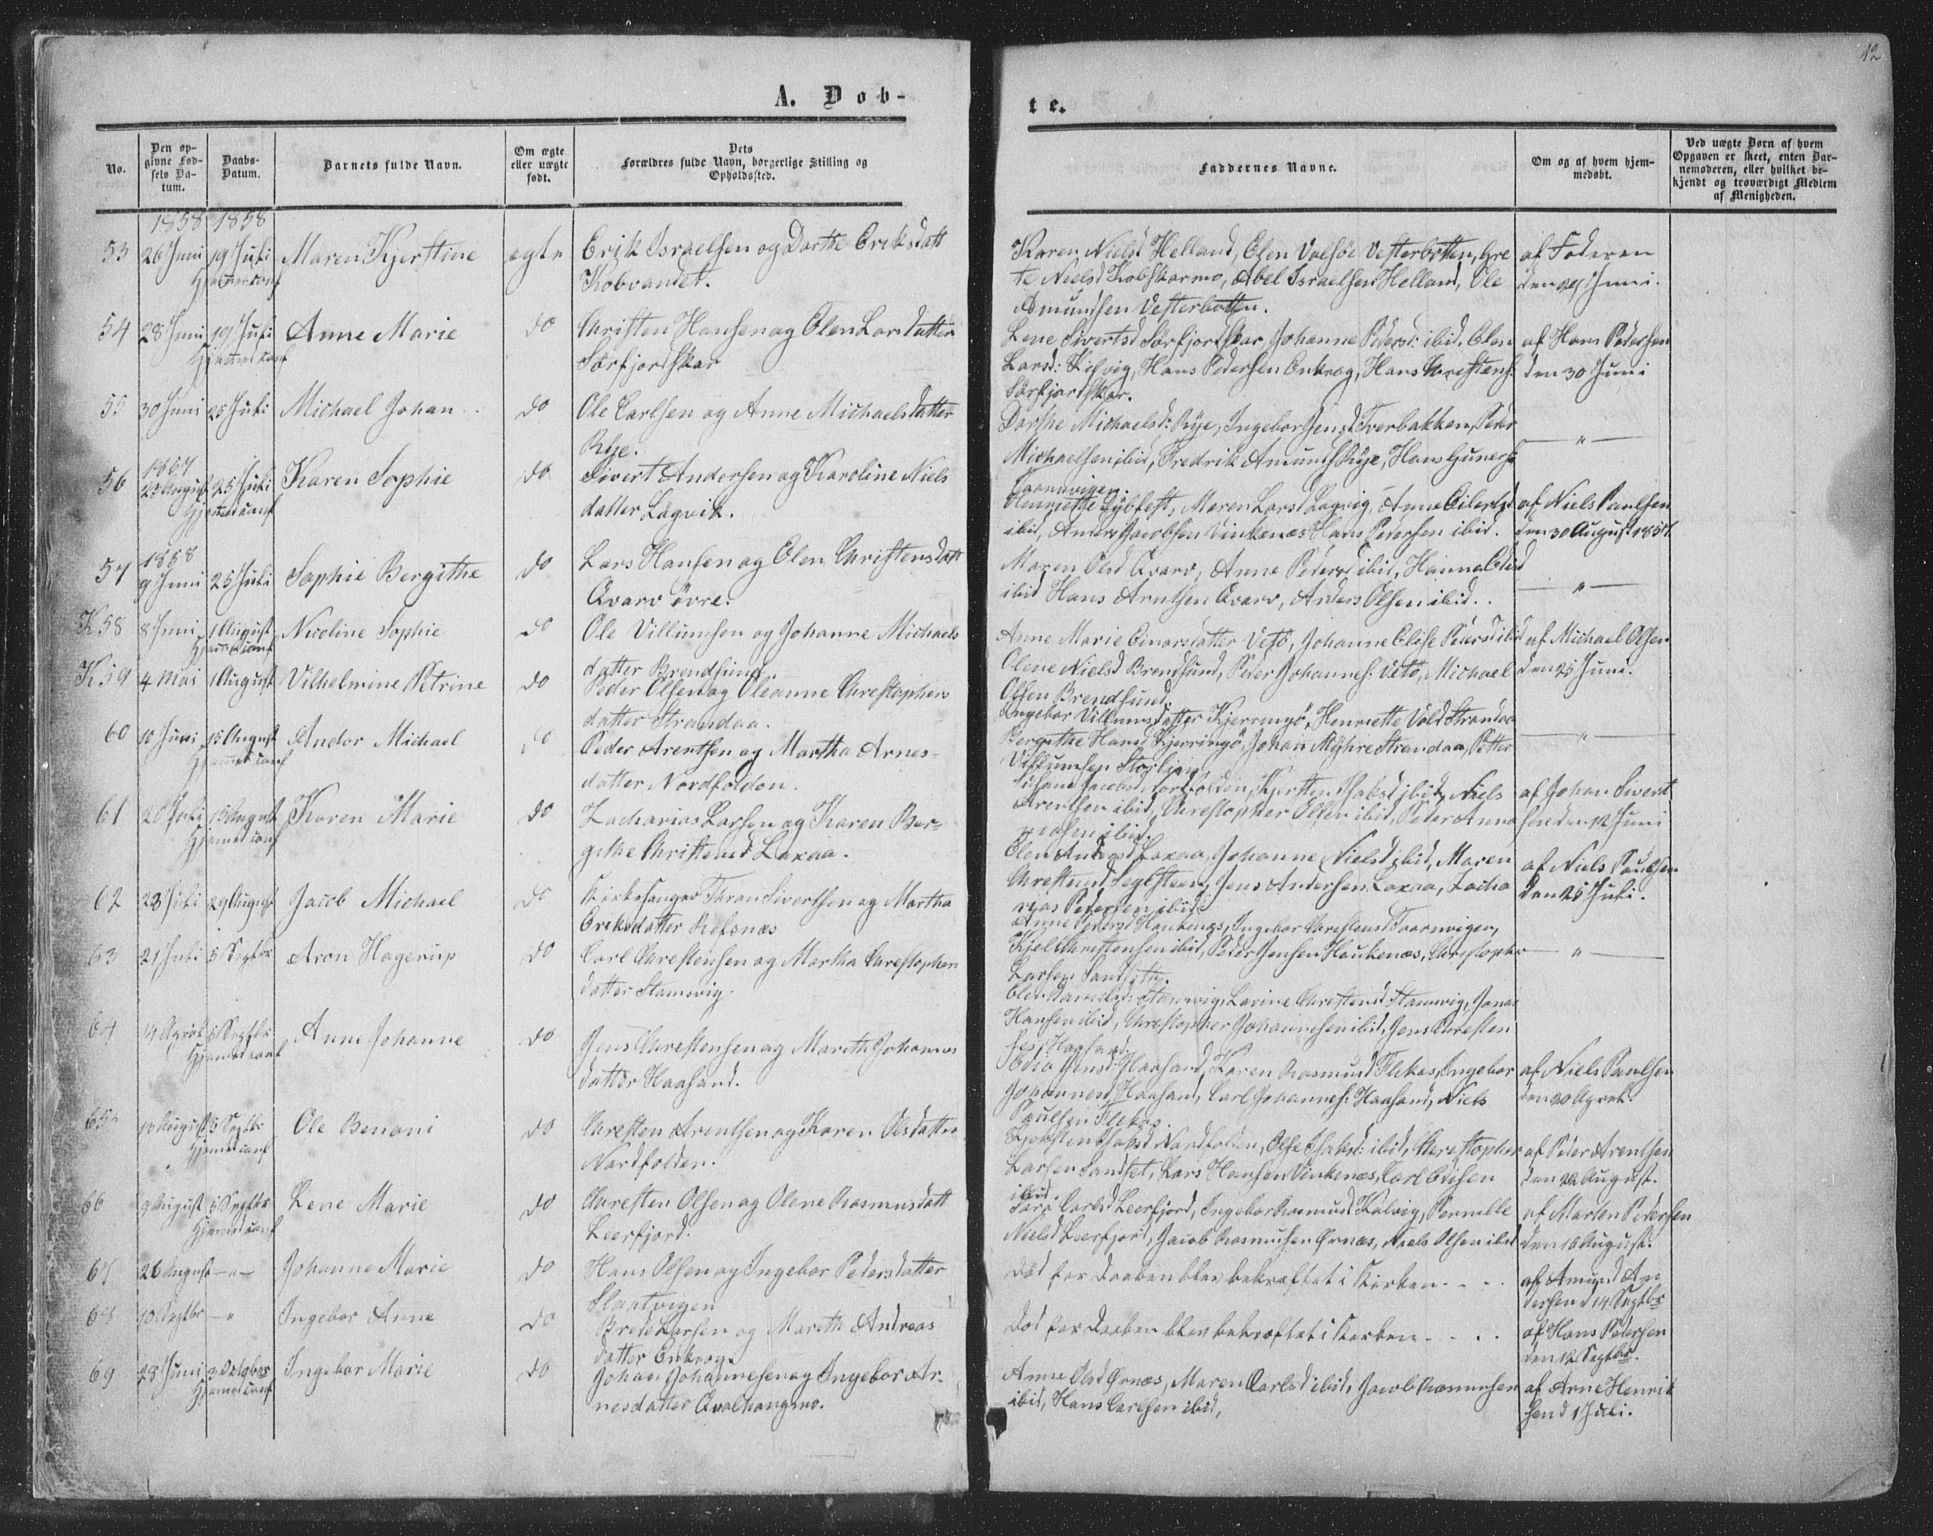 12
A. Døb-
te.
No.
Den op-
givne Fød-
sels Da-
tum.
Daabs-
Datum.
Barnets fulde Navn.
Om ægte
eller uægte
født.
Dets
Forældres fulde Navn, borgerlige Stilling og
Opholdssted.
Faddernes Navne.
Om og af hvem hjem-
medøbt.
Ved uægte Børn af hvem
Opgaven er skeet, enten Bar-
nemoderen, eller hvilket be-
kjendt og troværdigt Medlem
af Menigheden.
1858 1858
53 26 Juni 19 Juli Maren Kjerstine ægte Erik Israelsen og Dorthe Eriksdatt
Hjemmed. conf
Kobvandet.
Karen Nielsd Helland, Elen Valsöe Vesterbotten, Gre
te Nielsd Kobskarmo, Abel Israelsen Helland, Ole
Amundsen Vesterbotten.
af Faderen
den 29 Juni.
54 28 Juni 19 Juli Anne Marie do Christen Hansen og Elen Larsdatter
Hjemmed conf
Sörfjordskar
Lene Sivertsd Sörfjordskar, Johanne Pedersd: ibid, Elen
Larsd: Kilvig, Hans Pedersen Enkrog, Hans Christens:
Sörfjordskar.
af Hans Pedersen
den 30 Juni
55 30 Juni 25 Juli Michael Johan do Ole Carlsen og Anne Michaelsdatter
Rye.
Dorthe Michaelsd: Rye, Ingebor Jensd Tverbakken, Peder
Michaelsen ibid, Fredrik Amunds Rye, Hans Gunners
Taarnvigen.
— " —
1857
56 23 August 25 Juli Karen Sophie do Sivert Andersen og Karoline Niels
Hjemmed conf
datter Lagvik.
Henriette Sybfest, Maren Larsd Lagvig, Anne Eilertsd
ibid, Anders Jacobsen Vinkenæs Hans Pedersen ibid.
af Niels Paulsen
den 30 August 1857.
1858
57 9 Juni 25 Juli Sophie Bergithe do Lars Hansen og Elen Christensdatt
Qvarv övre.
Maren Olsd Qvarv, Anne Pedersd ibid, Hanna Olsd
ibid Hans Arntsen Qvarv, Anders Olsen ibid.
— " —
K 58 8 Juni 1 August Nicoline Sophie do Ole Villumsen og Johanne Michaels
Hjemmed conf
datter Brendsund.
Anne Marie Einarsdatter Vetö, Johanne Elise Pedersd ibid
Olene Nielsd Brendsund, Peder Johannes: Vetö, Michael
Olsen Brendsund.
af Michael Olsen
den 25 Juni.
K 59 4 Mai 1 August Vilhelmine Petrine do Peder Olsen og Oleanne Christophers
datter Strandaa.
Ingebor Villumsdatter Kjerringö, Henriette Vold Strandaa
Bergithe Hansd Kjerringö, Johan Myhre Strandaa, Petter
Villumsen Storlien
— " —
60 10 Juni 15 August Andor Michael do Peder Arentsen og Martha Arnes-
Hjemmed conf
datter Nordfolden.
Susane Jacobsd Nordfolden, Kjersten Isaksd ibid, Niels
Arentsen ibid, Christopher Olsen ibid, Peder Anna
niasen ibid.
af Johan Sivert
sen den 12 Juni
61 20 Juli 15 August Karen Marie do Zacharias Larsen og Karen Ber-
Hjemmed conf
githe Christensd Laxaa.
Elen Andersd Laxaa, Johanne Nielsd ibid, Maren
Christensd Seglsteen, Jens Andersen Laxaa, Zacha
rias Pedersen ibid.
af Niels Paulsen
den 25 Juli.
62 23 Juli 29 August Jacob Michael do Kirkesanger Thran Sivertsen og Martha
Eriksdatter Refsnæs
Anne Pedersd Haukenæs, Ingebor Christensd Taarnvigen,
Kjel Christensen ibid, Peder Jensen Haukenæs, Christopher
Larsen Sandseth.
— " —
63 21 Juli 5 Septbr Aron Hagerup do Carl Christensen og Martha Christopher
datter Stamsvig.
Elen Danielsd: Stamsvig, Larine Christensd Stamsvig, Jonas
Hansen ibid, Christopher Johannesen ibid, Jens Christen
sen Haasand.
64 14 April 5 Septbr Anne Johanne do Jens Christensen og Mareth Johannes
Hjemmed conf
datter Haasand.
Jensd: Haasand, Karen Rasmusd Flekas, Ingebor
Johannesd Haasand, Carl Johannes: Haasand, Niels
Paulsen Flekas.
af Niels Paulsen
den 20 April.
65 10 August 5 Septbr Ole Benoni do Christen Arentsen og Karen Olsdatter
Hjemmed conf
Nordfolden.
Kjersten Isaksd Nordfolden, Olse Isaksd: ibid, Christopher
Larsen Sandset, Lars Hansen Vinkenæs, Carl Edisen
ibid.
af Peder Arentsen
den 22 August.
66 9 August 5 Septbr Lene Marie do Christen Olsen og Olene Rasmusdatt
Hjemmed conf
Leerfjord.
Sara Carlsd Leerfjord, Ingebor Rasmusd Kalvig, Pernille
Nielsd Leerfjord, Jacob Rasmusen Örnæs, Niels Olsen ibid
af Marten Pedersen
den 16 August.
67 26 August — " — Johanne Marie do Hans Olsen og Ingebor Pedersdatter
Slaatvigen
Död för Daaben blev bekræftet i Kirken - - - -
af Amund An
dersen d 14 Septbr
68 10 Septbr — " Ingebor Anne do Brede Larsen og Mareth Andreas
datter Enkrog
Död för Daaben blev bekræftet i Kirken - - . .
af Hans Pedersen
den 12 Septbr.
69 28 Juni 3 October Ingebor Marie do Johan Johannesen og Ingebor Ar-
Hjemmed conf
nesdatter Qvalhangmo.
Anne Olsd Örnæs, Maren Carlsd ibid, Jacob Rasmusen
ibid, Hans Carlsen ibid,
af Arne Henrik
sen d 1 Juli.